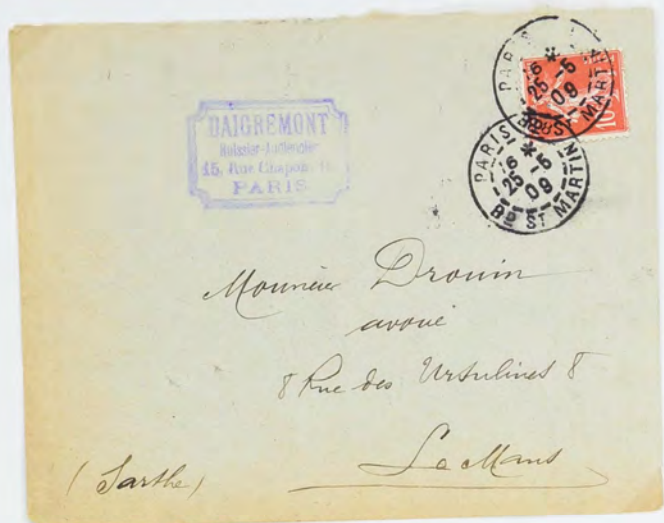 DAIGREMONT
Huissier-Audiencier
15, Rue Chapon, 15
PARIS
PARIS *
6
25 -5
09
Bd ST MARTIN
10
PARIS *
6
25 -5
09
Bd ST MARTIN
Monsieur Drouin
avoué
8 Rue des Ursulines 8
Le Mans
(Sarthe)